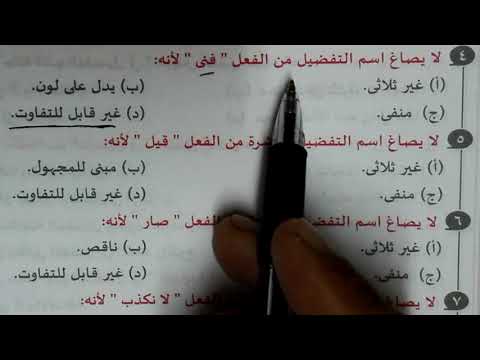 ٤ لا يصاغ اسم التفضيل من الفعل " فنى " لأنه:
(أ) غير ثلاثى. (ب) يدل على لون.
(ج) منفى. (د) غير قابل للتفاوت.
٥ لا يصاغ اسم التفضيل من الفعل " قيل " لأنه:
(أ) غير ثلاثى. (ب) مبنى للمجهول.
(ج) منفى. (د) غير قابل للتفاوت.
٦ لا يصاغ اسم التفضيل الفعل " صار " لأنه:
(أ) غير ثلاثى. (ب) ناقص.
(ج) منفى. (د) غير قابل للتفاوت.
٧ لا يصاغ اسم التفضيل الفعل " لا نكذب " لأنه: